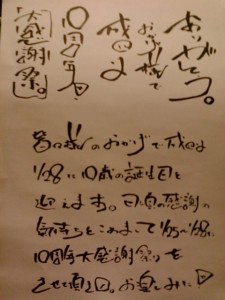 ありがとう。
おかげ様で
成田よ
10周年。
「大感謝祭」
皆々様のおかげで成田よ
1/28に10歳の誕生日を
迎えます。日頃の感謝の
気持ちをこめまして1/25〜1/28に
10周年大感謝祭りを
させて頂きます。お楽しみに